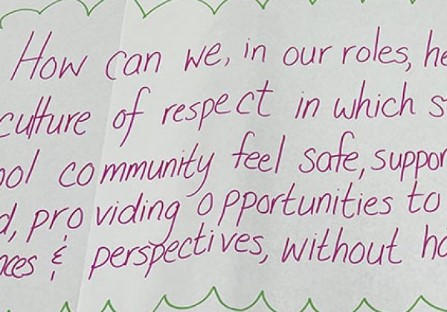 How can we, in our roles, he
culture of respect in which s
ool community feel safe, suppor
d, providing opportunities to
nces & perspectives, without ha